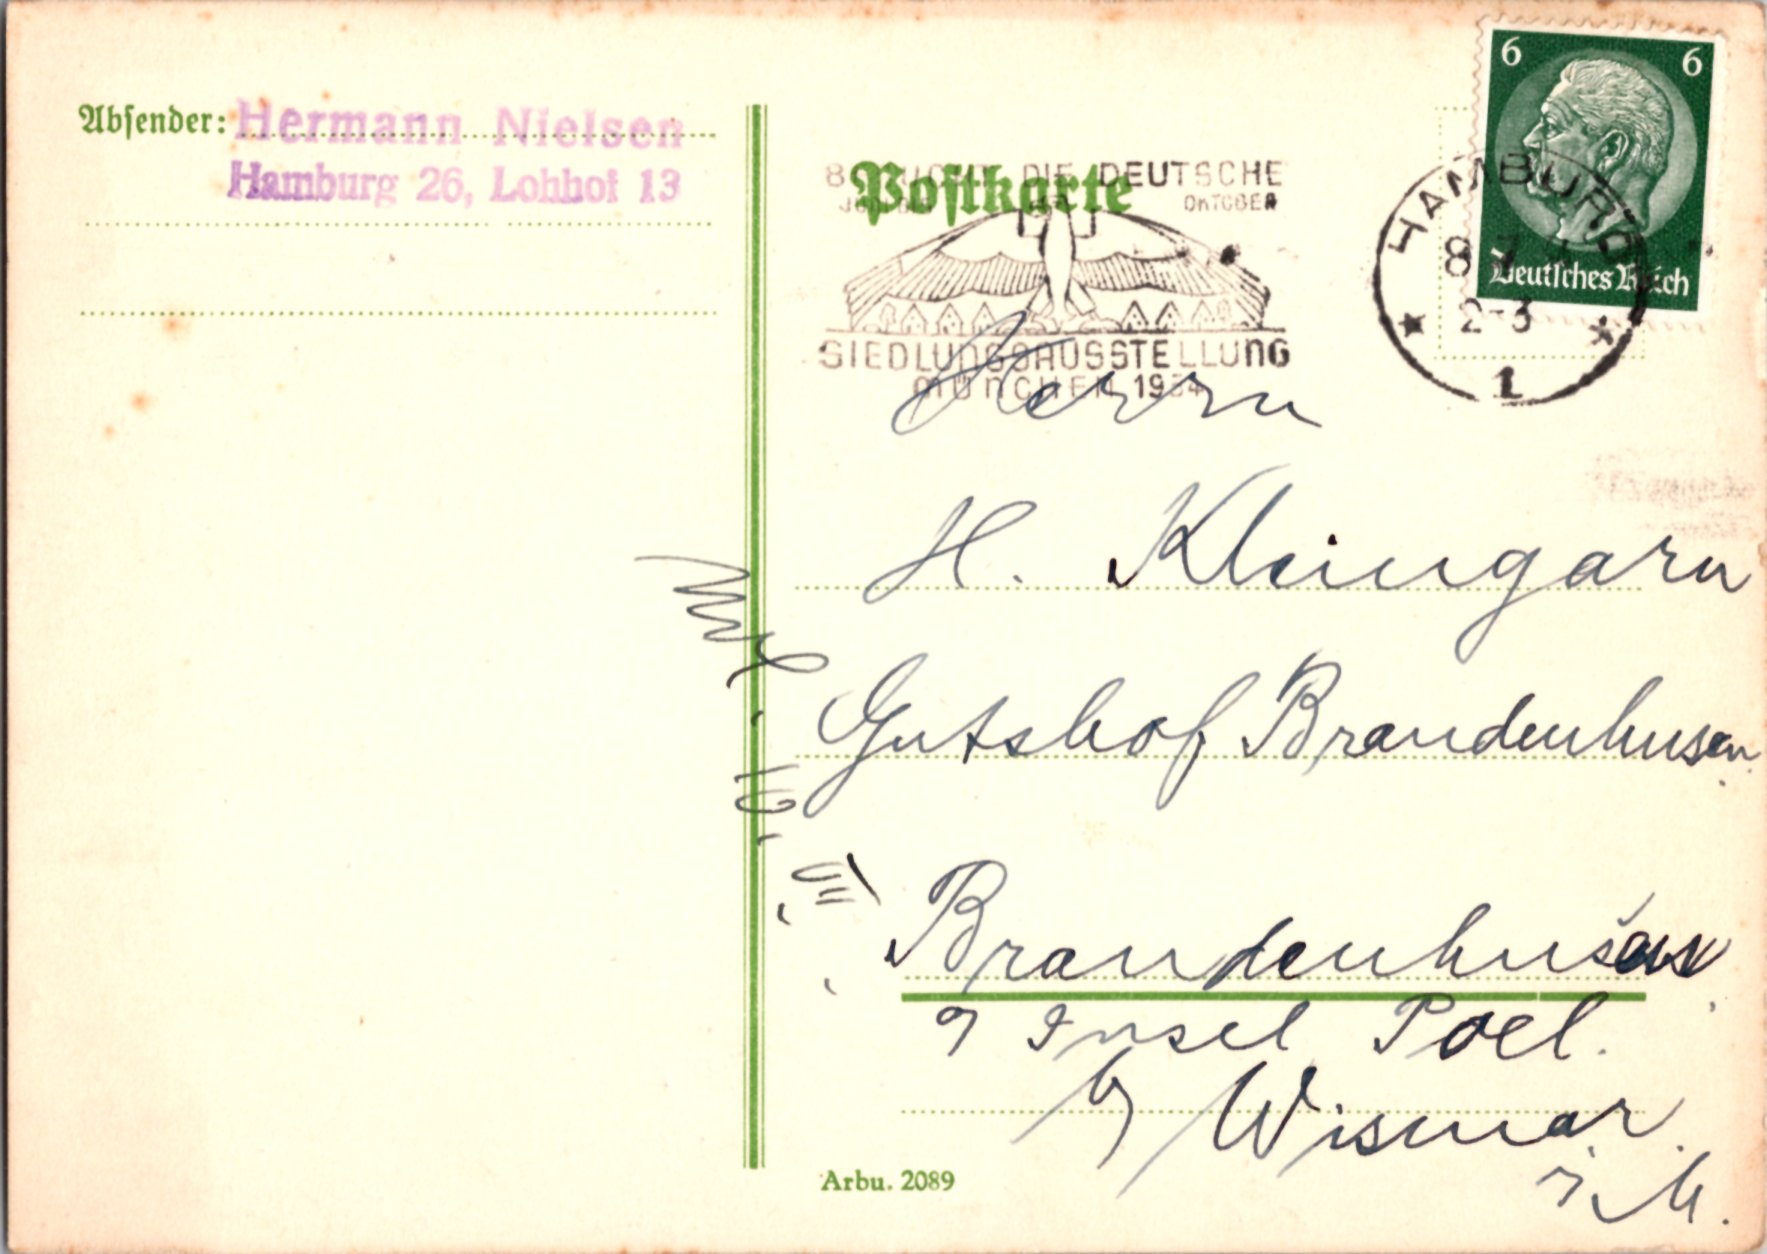 Absender: Hermann Nielsen
Hamburg 26, Lohhof 13
Postkarte
DIE DEUTSCHE
OKTOBER
SIEDLUNGSAUSSTELLUNG
MÜNCHEN 1934
6 6
Deutsches Reich
HAMBURG
8 7
2-3
1
Herrn
H. Kleingarn
Gutshof Brandenhusen
Brandenhusen
Insel Poel.
b/ Wismar.
i. M.
Arbu. 2089